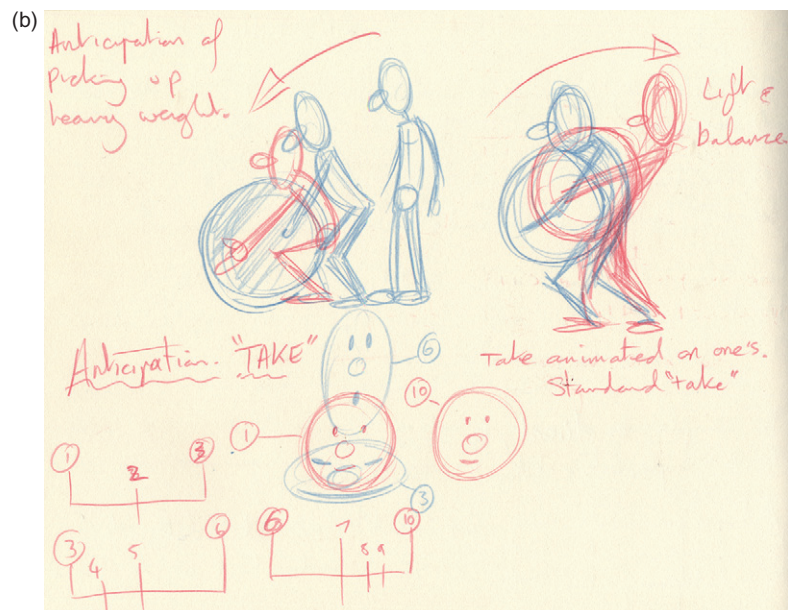 (b)
Anticipation of
picking up
heavy weight.
Lift &
balance
Anticipation. "TAKE"
6
Take animated on one's.
Standard "take"
10
1
3
1 2 3
3 4 5 6
6 7 8 9 10